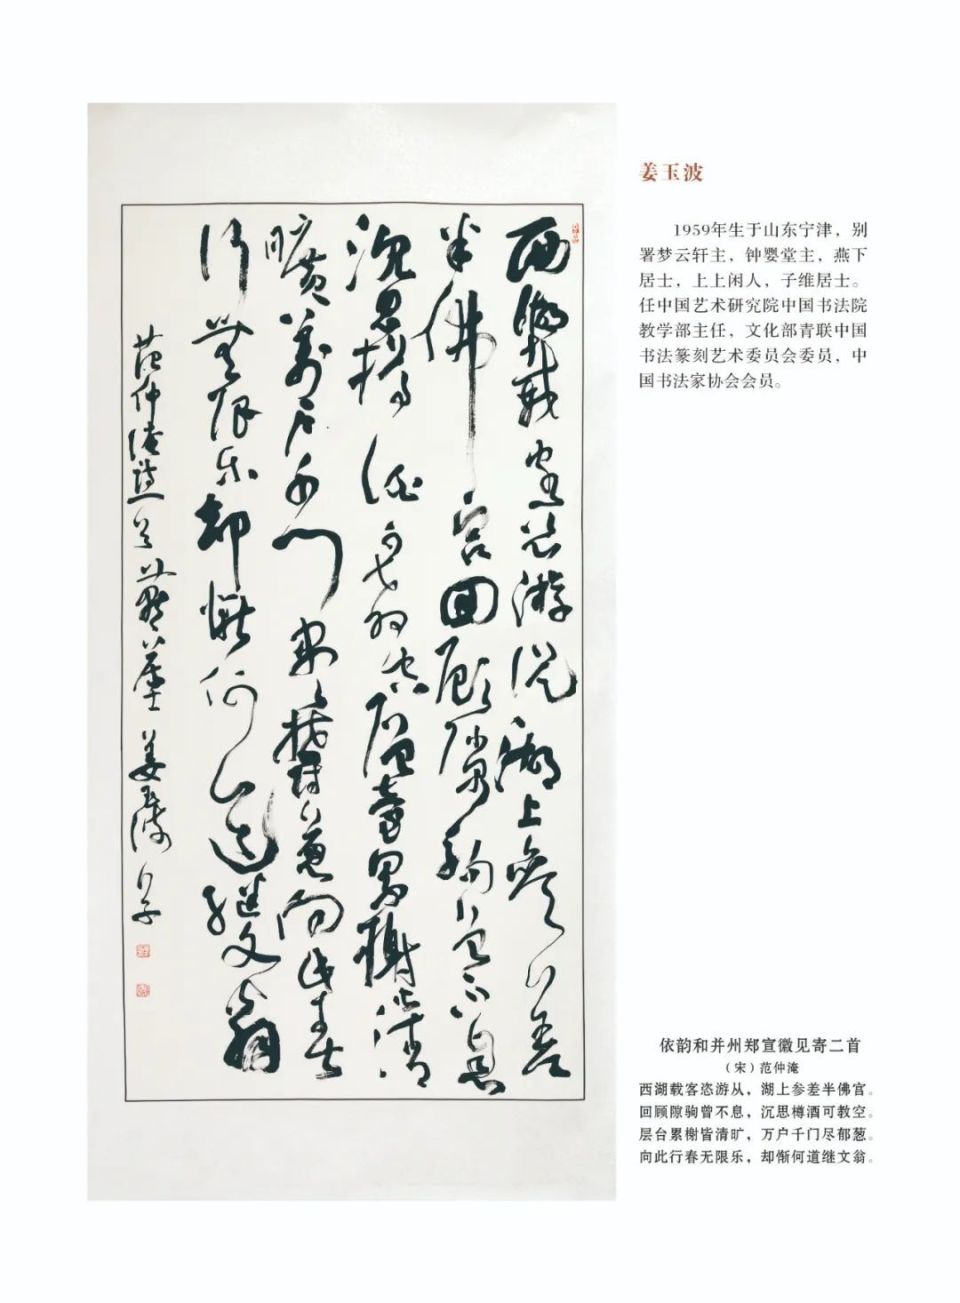 西湖載客恣游從湖上參差
半佛宫回顧隙駒曾不息
沉思樽酒可教空層臺累榭皆清
曠萬戶千門盡鬱蔥向此春
行無限樂却慚何道繼文翁
范仲淹詩一首 姜玉波
姜玉波
1959年生于山东宁津，别
署梦云轩主，钟婴堂主，燕下
居士，上上闲人，子维居士。
任中国艺术研究院中国书法院
教学部主任，文化部青联中国
书法篆刻艺术委员会委员，中
国书法家协会会员。
依韵和并州郑宣徽见寄二首
（宋）范仲淹
西湖载客恣游从，湖上参差半佛官。
回顾隙驹曾不息，沉思樽酒可教空。
层台累榭皆清旷，万户千门尽郁葱。
向此行春无限乐，却惭何道继文翁。